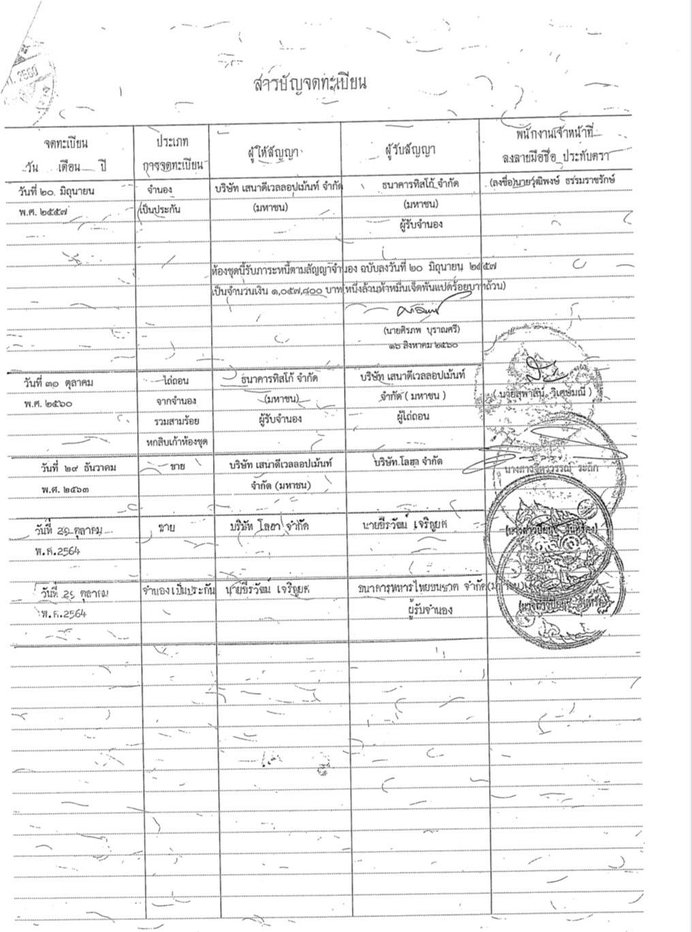 สารบัญจดทะเบียน
จดทะเบียน
วัน เดือน ปี
ประเภท
การจดทะเบียน
ผู้ให้สัญญา
ผู้รับสัญญา
พนักงานเจ้าหน้าที่
ลงลายมือชื่อ ประทับตรา
วันที่ ๒๐ มิถุนายน
พ.ศ. ๒๕๕๗
จำนอง
เป็นประกัน
บริษัท เสนาดีเวลลอปเม้นท์ จำกัด
(มหาชน)
ธนาคารทิสโก้ จำกัด
(มหาชน)
ผู้รับจำนอง
(ลงชื่อ)นายวุฒิพงษ์ ธรรมราชรักษ์
ห้องชุดนี้รับภาระหนี้ตามสัญญาจำนอง ฉบับลงวันที่ ๒๐ มิถุนายน ๒๕๕๗
เป็นจำนวนเงิน ๑,๐๕๗,๘๐๐ บาท(หนึ่งล้านห้าหมื่นเจ็ดพันแปดร้อยบาทถ้วน)
(นายศิรภพ บุราณศรี)
๑๖ สิงหาคม ๒๕๖๐
วันที่ ๓๐ ตุลาคม
พ.ศ. ๒๕๖๐
ไถ่ถอน
จากจำนอง
รวมสามร้อย
หกสิบเก้าห้องชุด
ธนาคารทิสโก้ จำกัด
(มหาชน)
ผู้รับจำนอง
บริษัท เสนาดีเวลลอปเม้นท์
จำกัด ( มหาชน )
ผู้ไถ่ถอน
วันที่ ๒๙ ธันวาคม
พ.ศ. ๒๕๖๓
ขาย
บริษัท เสนาดีเวลลอปเม้นท์
จำกัด (มหาชน)
บริษัท โลฮา จำกัด
ตุลาคม
พ.ศ.2564
ขาย
บริษัท โลฮา จำกัด
วันที่ ตุลาคม
พ.ศ.2564
จำนองเป็นประกัน
ธนาคารทหารไทยธนชาต จำกัด(มหาชน)
ผู้รับจำนอง